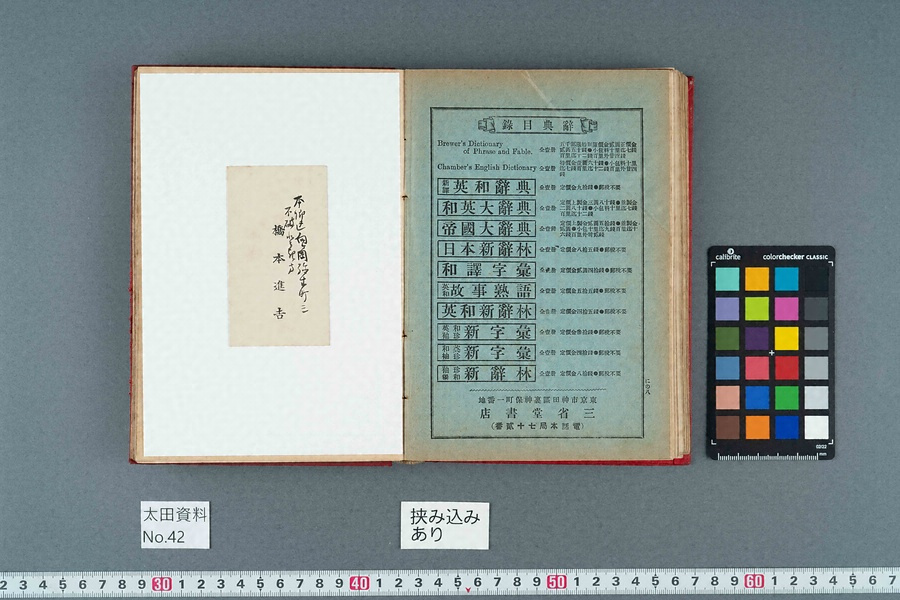 本郷区向岡弥生町三
橋本進吉
辭典目錄
Brewer's Dictionary
of Phrase and Fable.
Chamber's English Dictionary
全壹冊
新譯 英和辭典
全壹冊 定價金九拾錢●郵稅不要
和英大辭典
全壹冊
帝國大辭典
全壹冊
日本新辭林
全壹冊 定價金八拾五錢●郵稅不要
和譯字彙
全壹冊 定價金貳圓四拾錢●郵稅不要
英和 故事熟語
全壹冊 定價金五拾五錢●郵稅不要
英和新辭林
全壹冊 定價金四拾五錢●郵稅不要
英和袖珍 新字彙
全壹冊 定價金參拾錢●郵稅不要
和英袖珍 新字彙
全壹冊 定價金四拾錢●郵稅不要
新辭林
全壹冊 定價金八拾錢●郵稅不要
東京市神田區裏神保町一番地
三省堂書店
(電話本局七十貳番)
にの八
calibrite
colorchecker CLASSIC
mm
太田資料
No.42
挟み込み
あり
2 3 4 5 6 7 8 9 30 1 2 3 4 5 6 7 8 9 40 1 2 3 4 5 6 7 8 9 50 1 2 3 4 5 6 7 8 9 60 1 2 3 4 5 6 7